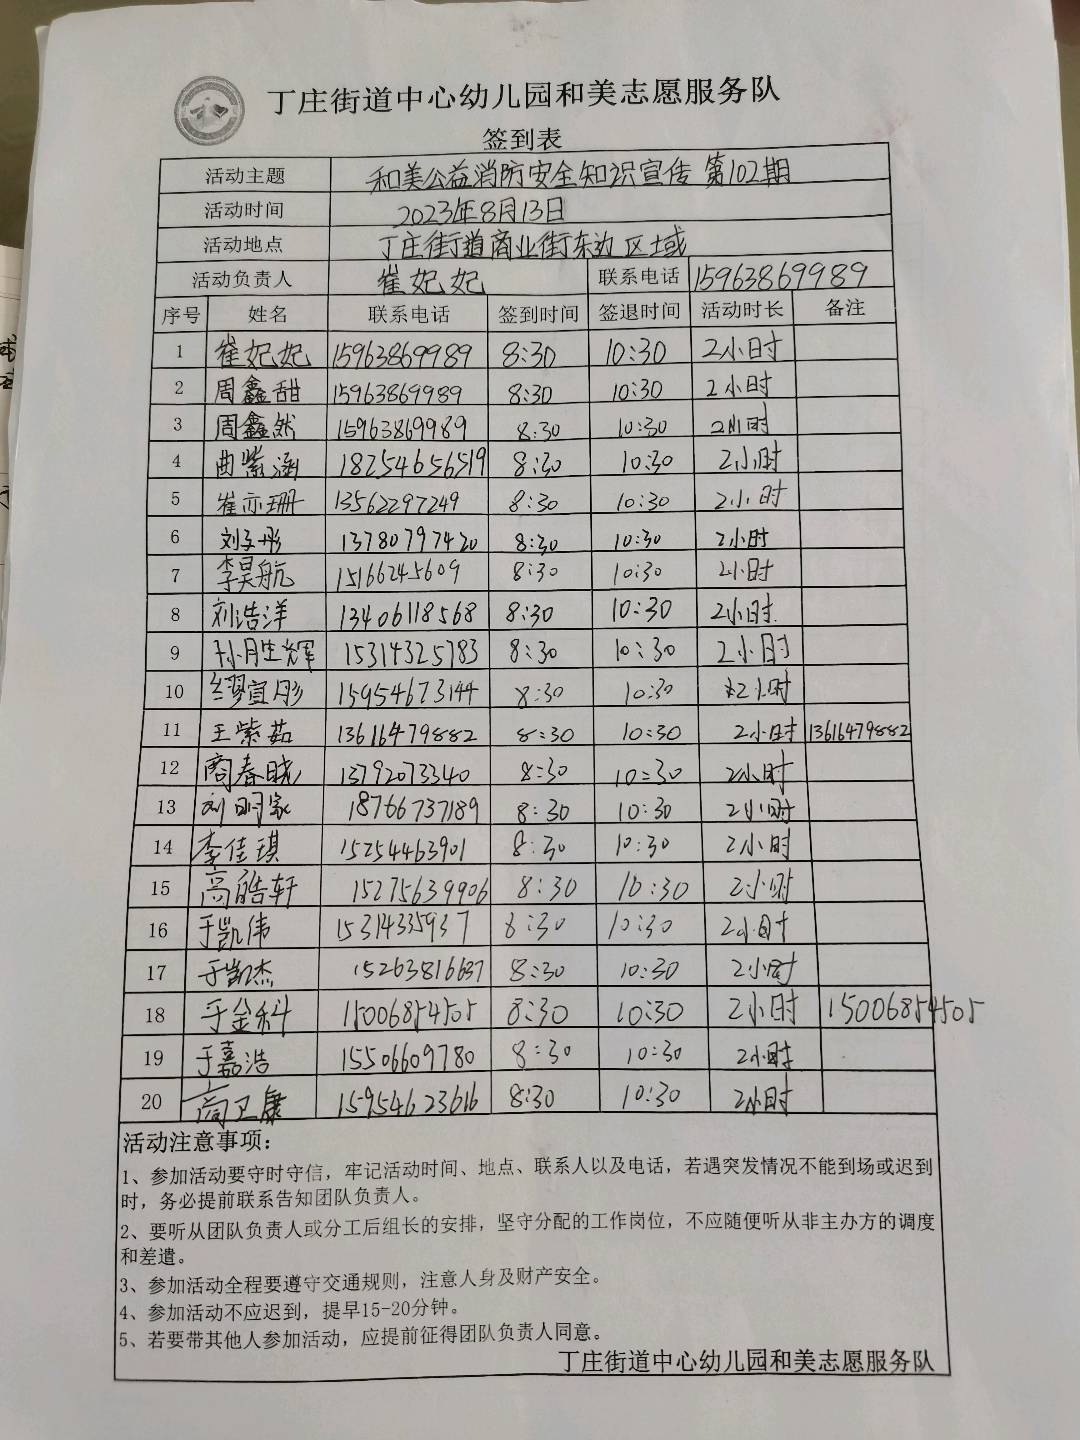 丁庄街道中心幼儿园和美志愿服务队
签到表
活动主题 和美公益消防安全知识宣传 第102期
活动时间 2023年8月13日
活动地点 丁庄街道商业街东边区域
活动负责人 崔妃妃 联系电话 15963869989
序号 姓名 联系电话 签到时间 签退时间 活动时长 备注
1 崔妃妃 15963869989 8:30 10:30 2小时
2 周鑫甜 15963869989 8:30 10:30 2小时
3 周鑫然 15963869989 8:30 10:30 2小时
4 曲紫涵 18254656519 8:30 10:30 2小时
5 崔亦珊 13562297249 8:30 10:30 2小时
6 刘子彤 13780797420 8:30 10:30 2小时
7 李昊航 15166245609 8:30 10:30 2小时
8 刘浩洋 13406118568 8:30 10:30 2小时
9 孙胜辉 15314325783 8:30 10:30 2小时
10 缪宣彤 15954673144 8:30 10:30 2小时
11 王紫茹 13616479882 8:30 10:30 2小时 13616479882
12 商春晓 13792073340 8:30 10:30 2小时
13 刘明家 18766737189 8:30 10:30 2小时
14 李佳琪 15254463901 8:30 10:30 2小时
15 高皓轩 15275639906 8:30 10:30 2小时
16 于凯伟 15314335937 8:30 10:30 2小时
17 于凯杰 15263816637 8:30 10:30 2小时
18 于金科 15006854505 8:30 10:30 2小时 15006854505
19 于嘉浩 15506609780 8:30 10:30 2小时
20 高卫康 15954623616 8:30 10:30 2小时
活动注意事项：
1、参加活动要守时守信，牢记活动时间、地点、联系人以及电话，若遇突发情况不能到场或迟到
时，务必提前联系告知团队负责人。
2、要听从团队负责人或分工后组长的安排，坚守分配的工作岗位，不应随便听从非主办方的调度
和差遣。
3、参加活动全程要遵守交通规则，注意人身及财产安全。
4、参加活动不应迟到，提早15-20分钟。
5、若要带其他人参加活动，应提前征得团队负责人同意。
丁庄街道中心幼儿园和美志愿服务队